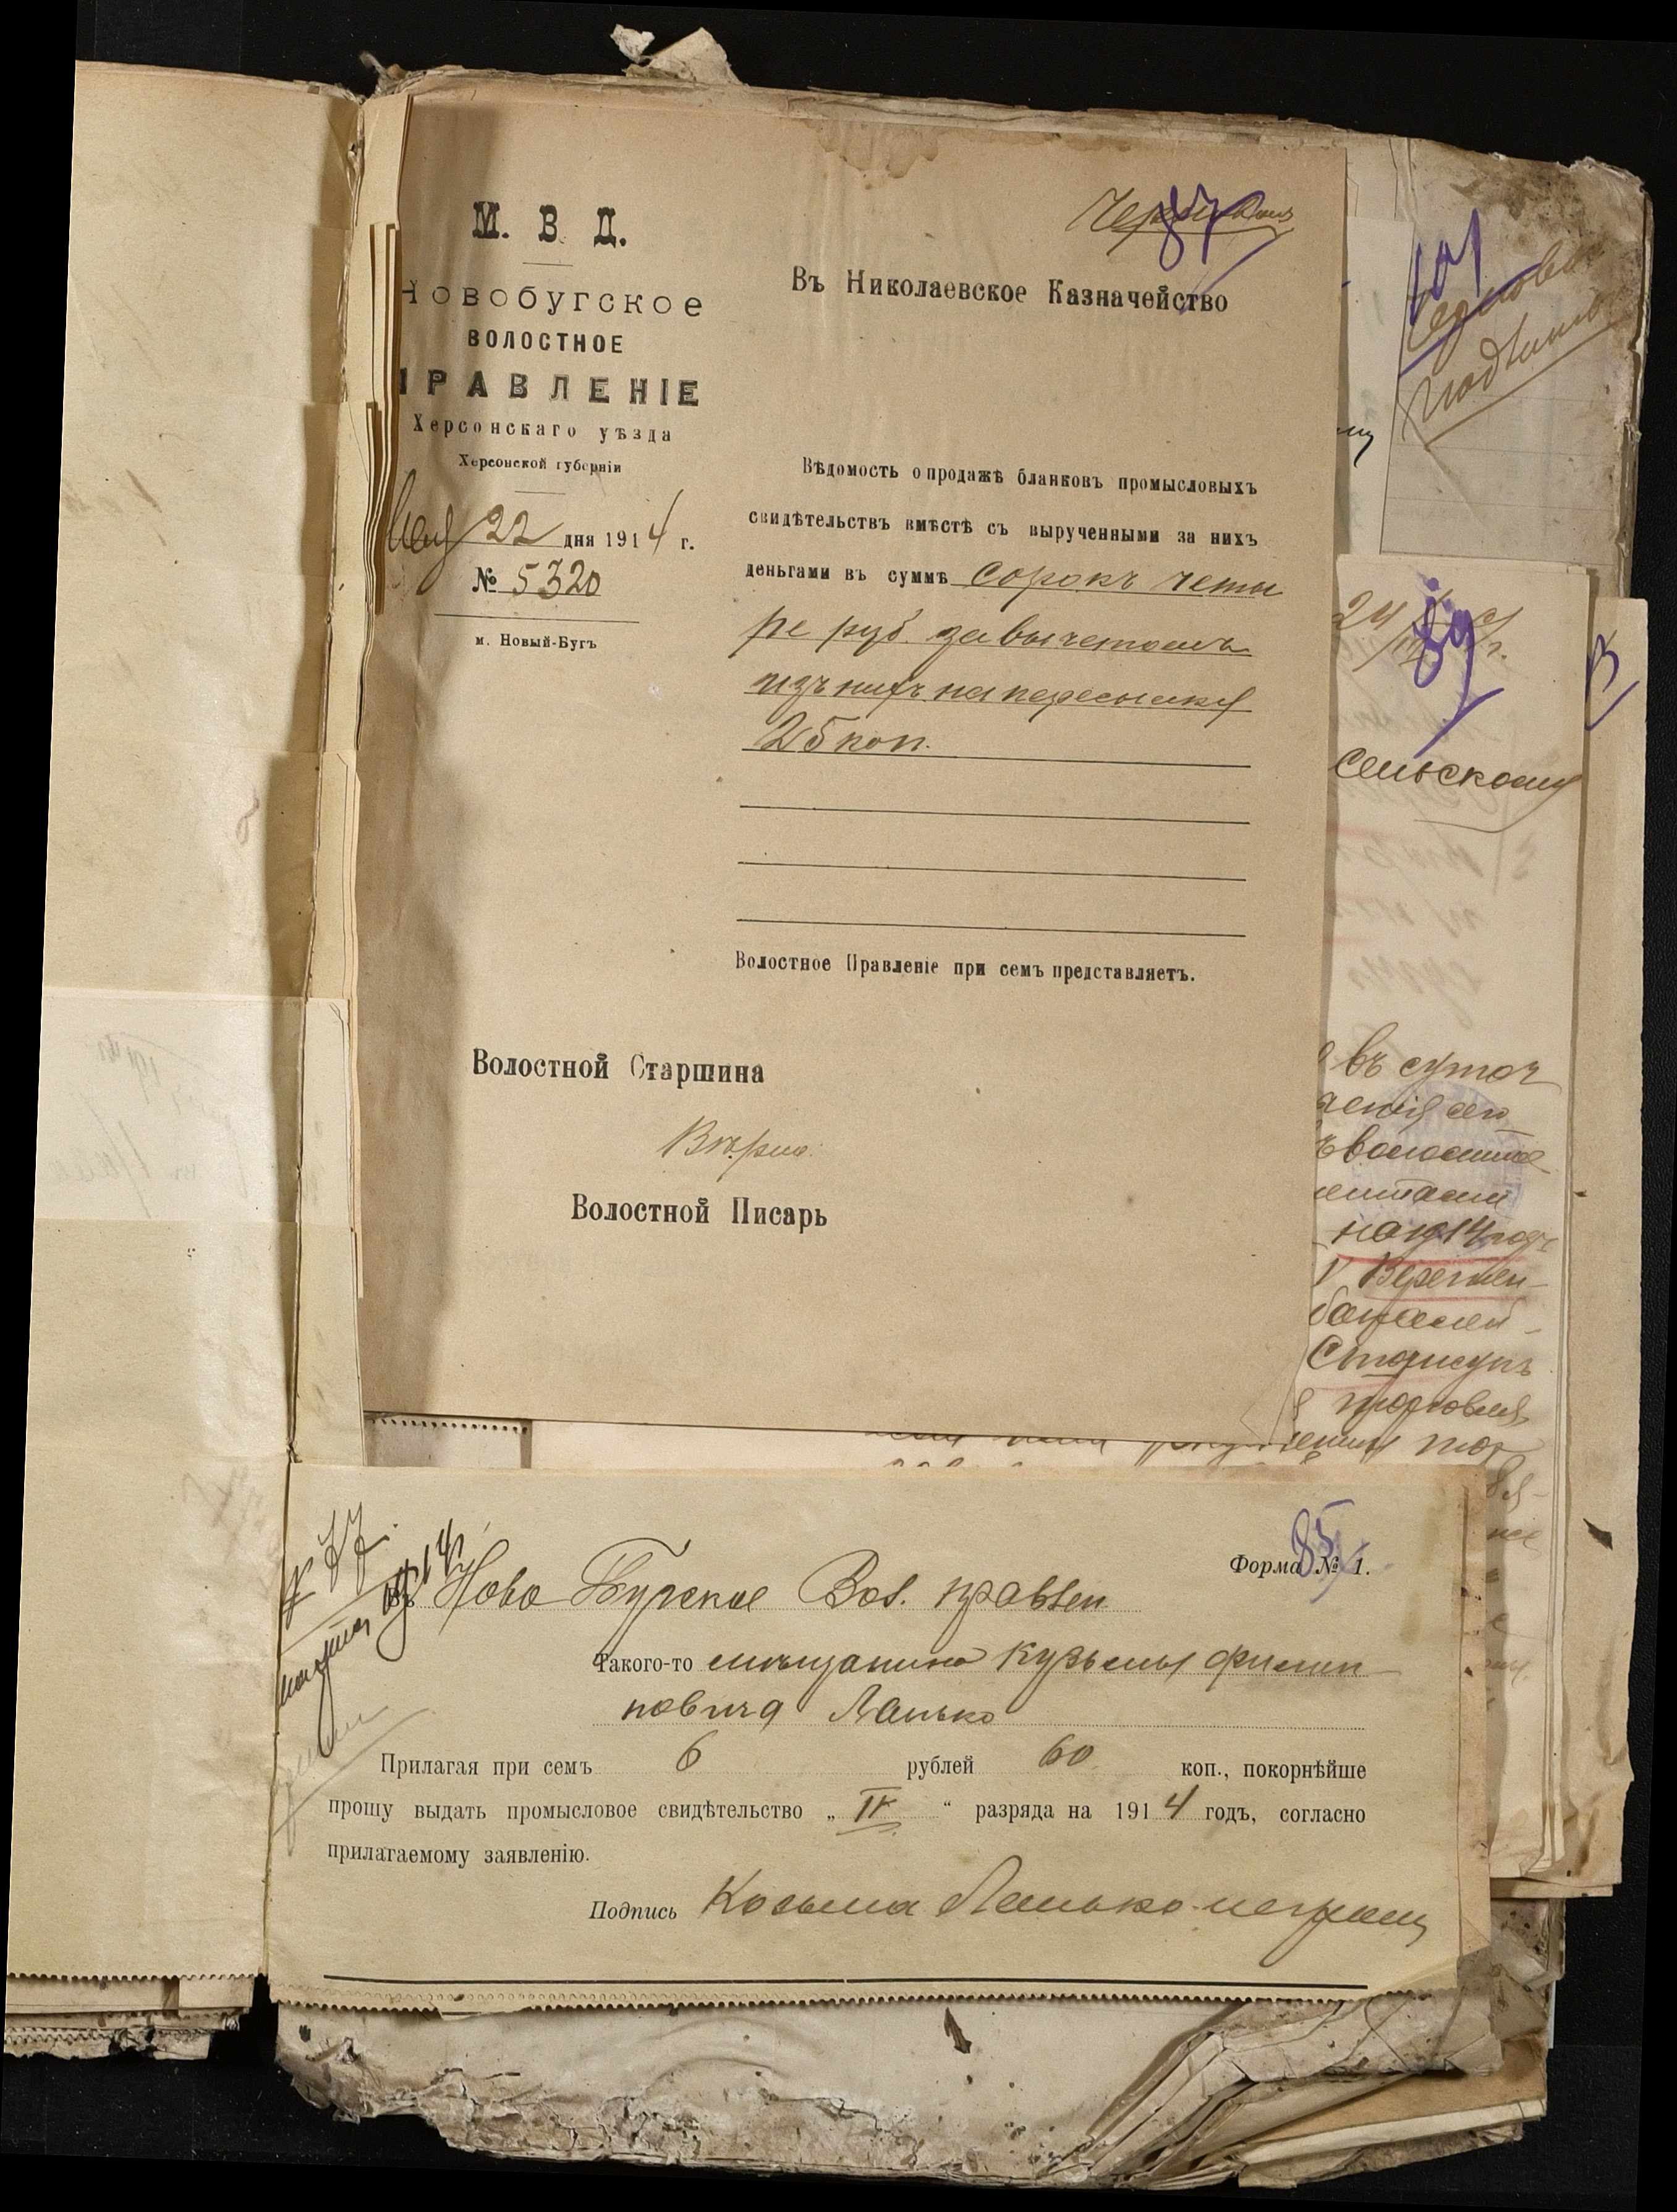 87
М. В. Д.
Новобугское
ВОЛОСТНОЕ
ПРАВЛЕНІЕ
Херсонскаго уѣзда
Херсонской губерніи
Мая 22 дня 1914 г.
№ 5320
м. Новый-Бугъ
Въ Николаевское Казначейство
Вѣдомость о продажѣ бланковъ промысловыхъ
свидѣтельствъ вмѣстѣ съ вырученными за нихъ
деньгами въ суммѣ сорокъ четы
ре руб. за вычетомъ
изъ нихъ на пересылку
25 коп.
Волостное Правленіе при семъ представляетъ.
Волостной Старшина
Волостной Писарь
101
89
сельскому
въ суточ
на 1914 годъ
торговля
85
Форма № 1.
№ 77
Въ Ново Бугское Вол. правлен
Такого-то мѣщанина Кузьмы Филип
повича Ланько
Прилагая при семъ 6 рублей 60 коп., покорнѣйше
прошу выдать промысловое свидѣтельство „ IV “ разряда на 1914 годъ, согласно
прилагаемому заявленію.
Подпись Козьма Ланько неграм